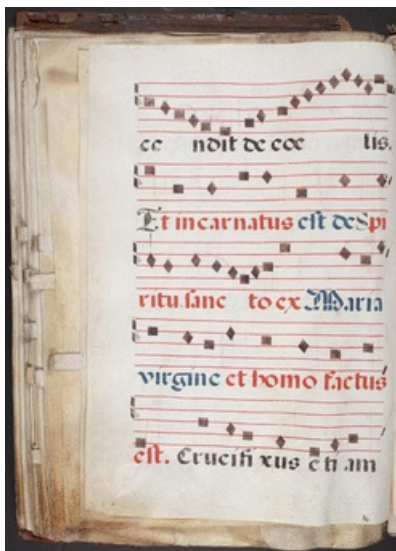 ce ndit de coe lis.
Et incarnatus est de Spi
ritu sanc to ex Maria
virgine et homo factus
est. Crucifi xus eti am